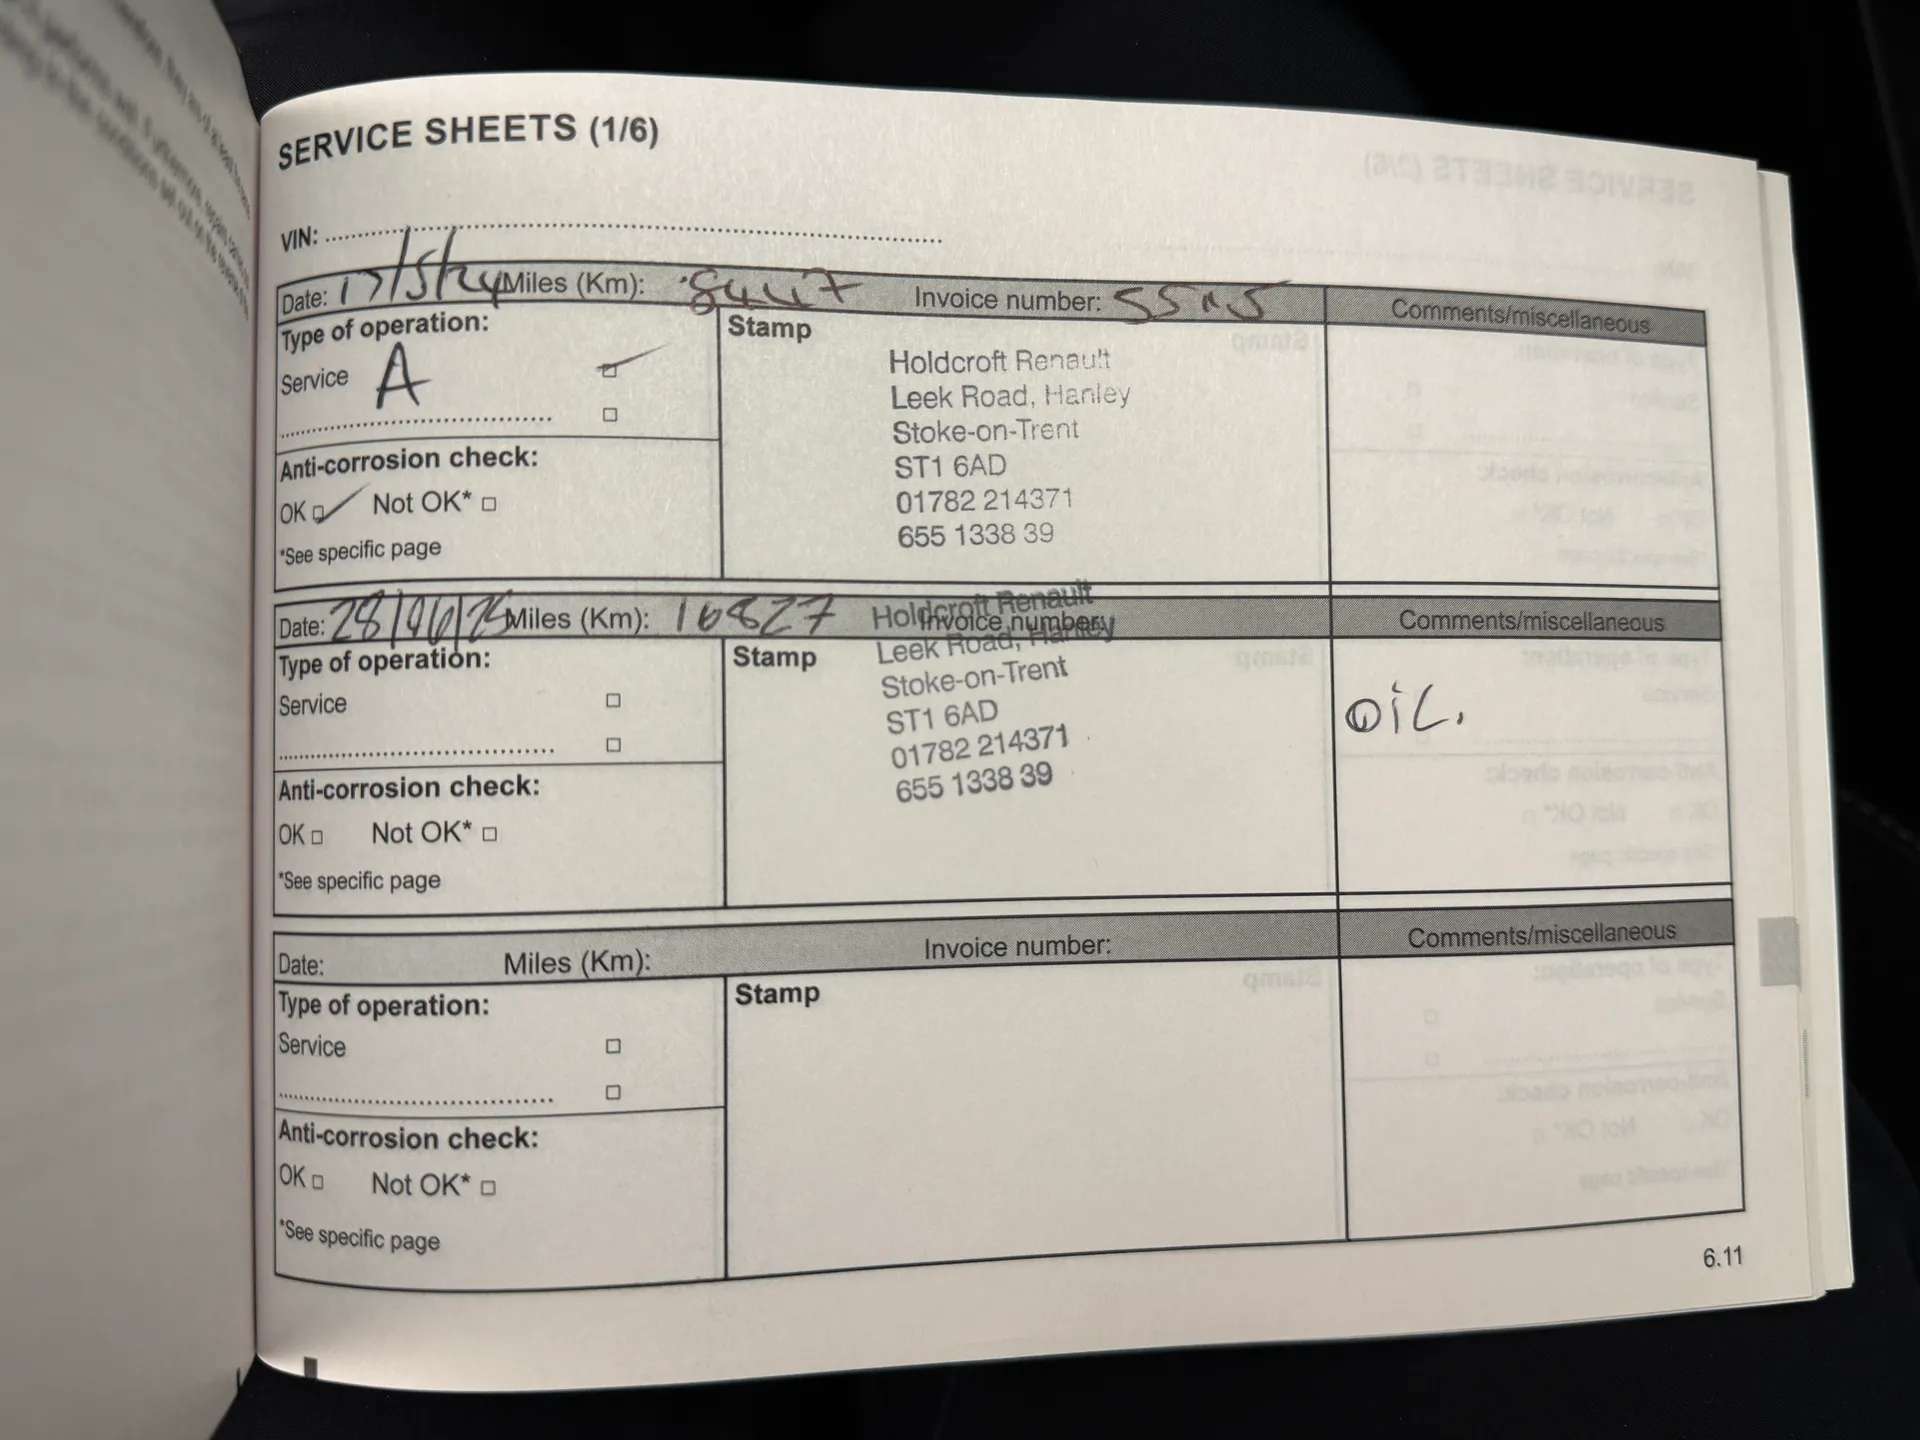 SERVICE SHEETS (1/6)
VIN:
Date: 17/5/24 Miles (Km): 8447 Invoice number: Comments/miscellaneous
Type of operation:
Service A
Stamp
Holdcroft Renault
Leek Road, Hanley
Stoke-on-Trent
ST1 6AD
01782 214371
655 1338 39
Anti-corrosion check:
OK Not OK*
*See specific page
Date: 28/06/25 Miles (Km): 16827 Invoice number: Comments/miscellaneous
Type of operation:
Service
Stamp
Holdcroft Renault
Leek Road, Hanley
Stoke-on-Trent
ST1 6AD
01782 214371
655 1338 39
OIL.
Anti-corrosion check:
OK Not OK*
*See specific page
Date: Miles (Km): Invoice number: Comments/miscellaneous
Type of operation:
Service
Stamp
Anti-corrosion check:
OK Not OK*
*See specific page
6.11